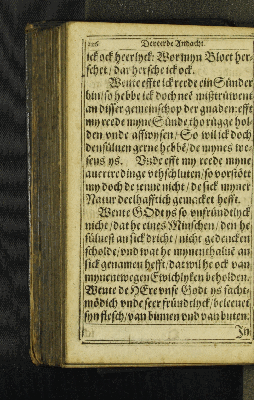 226 De veerde Andacht.
ick ock heerlyck: Wor myn Bloet her-
schet / dar hersche ick ock.
Wente effte ick reede ein Sünder
bin / so hebbe ick doch neē mißtrüwent
an disser gemeinschop der gnaden: efft
my reede myne Sünde thorügge hol-
den vnde affwysen / So wil ick doch
densüluen gerne hebbē / de mynes we-
sens ys. Vnde efft my reede myne
auertredinge vthschluten / so vorstött
my doch de jenne nicht / de sick myner
Natur deelhafftich gemacket hefft.
Wente GOdt ys so vnfründtlyck
nicht / dat he eines Minschen / den he
süluest an sick dricht / nicht gedencken
scholde / vnd wat he mynenthaluē an
sick genamen hefft / dat wil he ock van
mynentwegen Ewichlyken beholden.
Wente de HEre vnse Godt ys sacht-
mödich vnde seer fründtlyck / beleenet
syn flesch / van binnen vnd van buten:
In